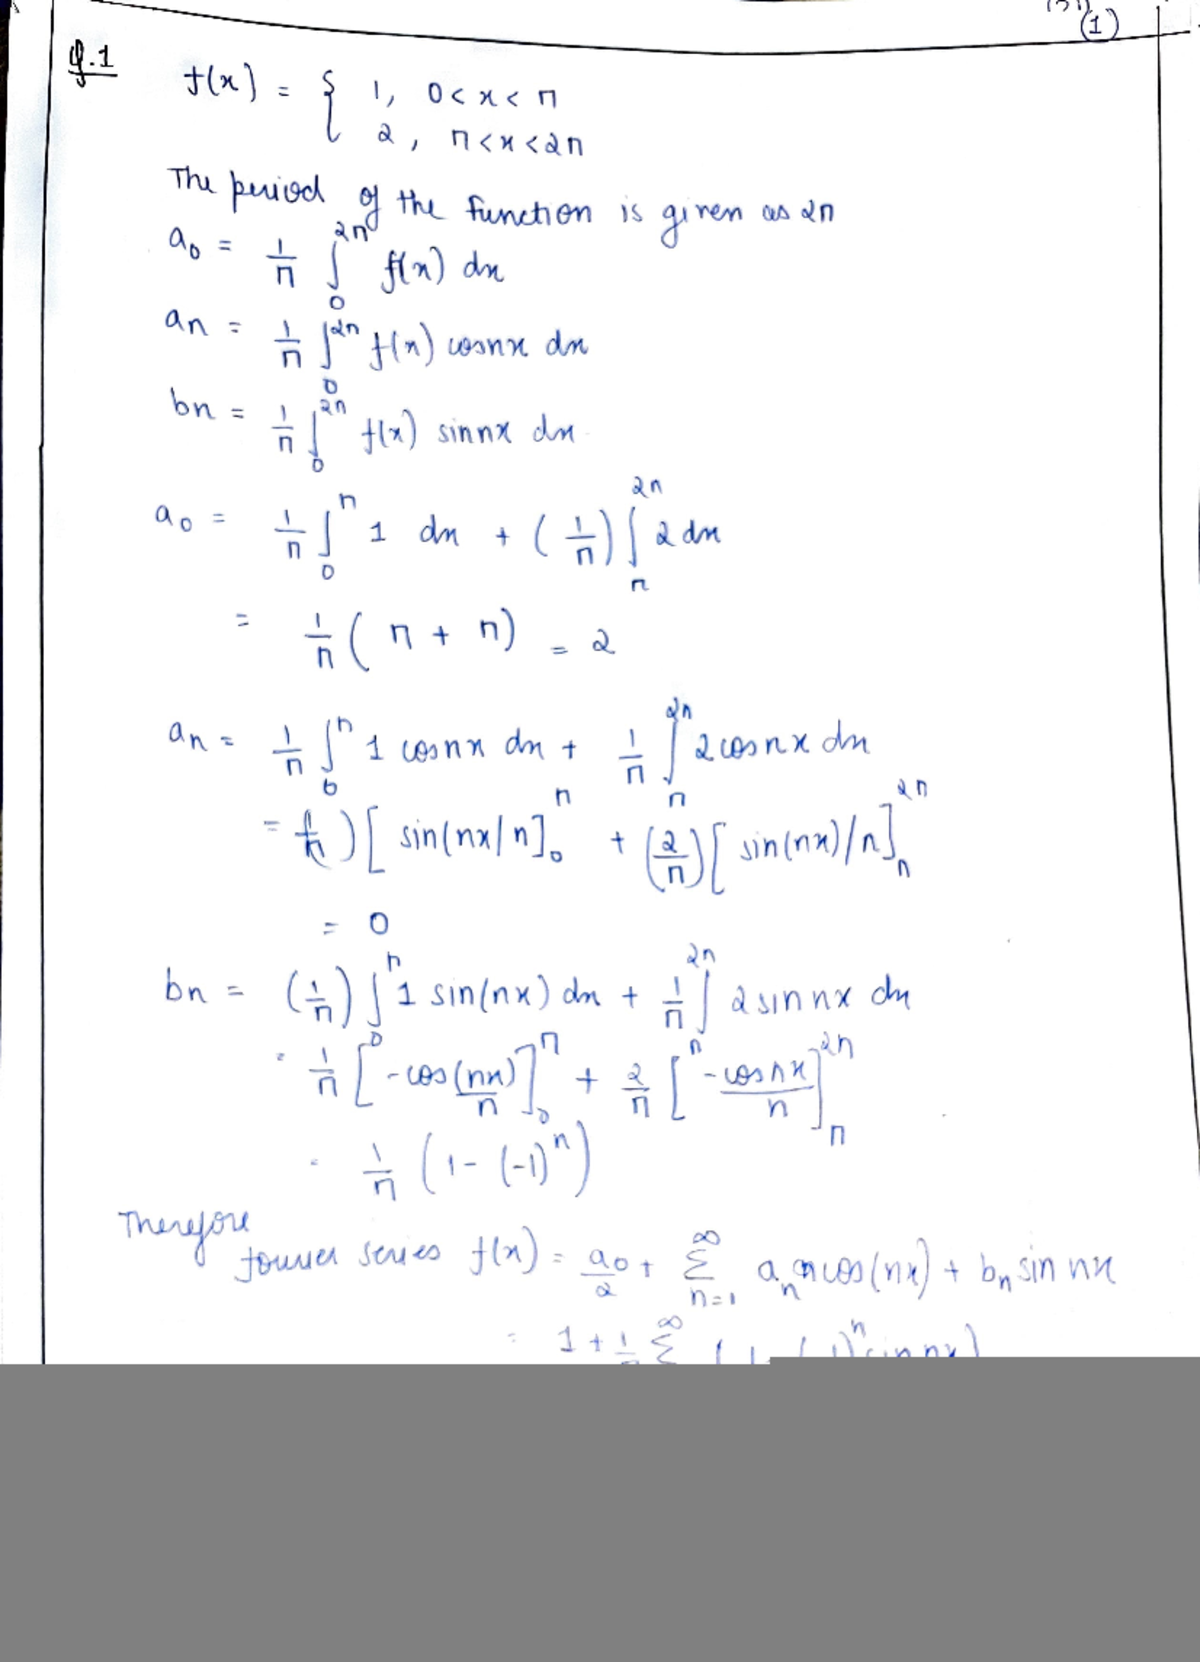 (1)
Q.1
f(x) = { 1, 0<x<π
2, π<x<2π
The period of the function is given as 2π
a0 = 1/π ∫_0^2π f(x) dx
an = 1/π ∫_0^2π f(x) cosnx dx
bn = 1/π ∫_0^2π f(x) sinnx dx
a0 = 1/π ∫_0^π 1 dx + (1/π) ∫_π^2π 2 dx
= 1/π (π + π) = 2
an = 1/π ∫_0^π 1 cosnx dx + 1/π ∫_π^2π 2 cosnx dx
= 1/π ) [ sin(nx/n]_0^π + (2/π) [ sin(nx)/n]_π^2π
= 0
bn = (1/π) ∫_0^π 1 sin(nx) dx + 1/π ∫_π^2π 2 sinnx dx
= 1/π [ -cos(nx)/n ]_0^π + 2/π [ -cosnx/n ]_π^2π
= 1/π (1-(-1)^n)
Therefore
fourier series f(x) = a0/2 + Σ_n=1^∞ an cos(nx) + bn sin nx
= 1 + 1/π Σ^∞